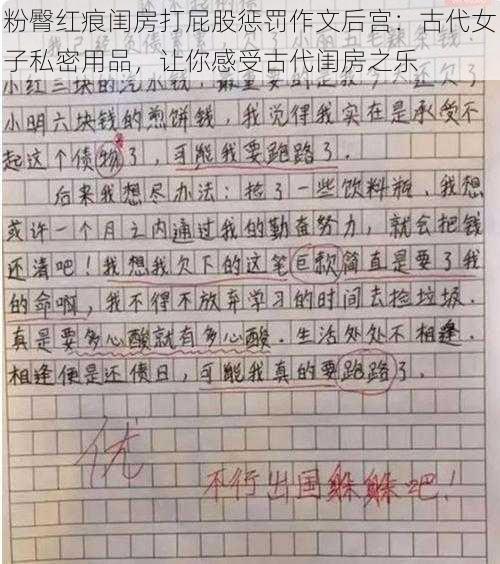 粉臀红痕闺房打屁股惩罚作文后宫：古代女
子私密用品，让你感受古代闺房之乐
小红三块的汽水钱，最重要的是我今天还欠了
小明六块钱的煎饼钱，我觉得我实在是承受不
起这个债物了，可能我要跑路了。
后来我想尽办法：捡了一些饮料瓶，我想
或许一个月之内通过我的勤奋努力，就会把钱
还清吧！我想我欠下的这笔巨款简直是要了我
的命啊，我不得不放弃学习的时间去捡垃圾。
真是要多心酸就有多心酸。生活处处不相逢，
相逢便是还债日，可能我真的要跑路了。
优
不行出国躲躲吧！